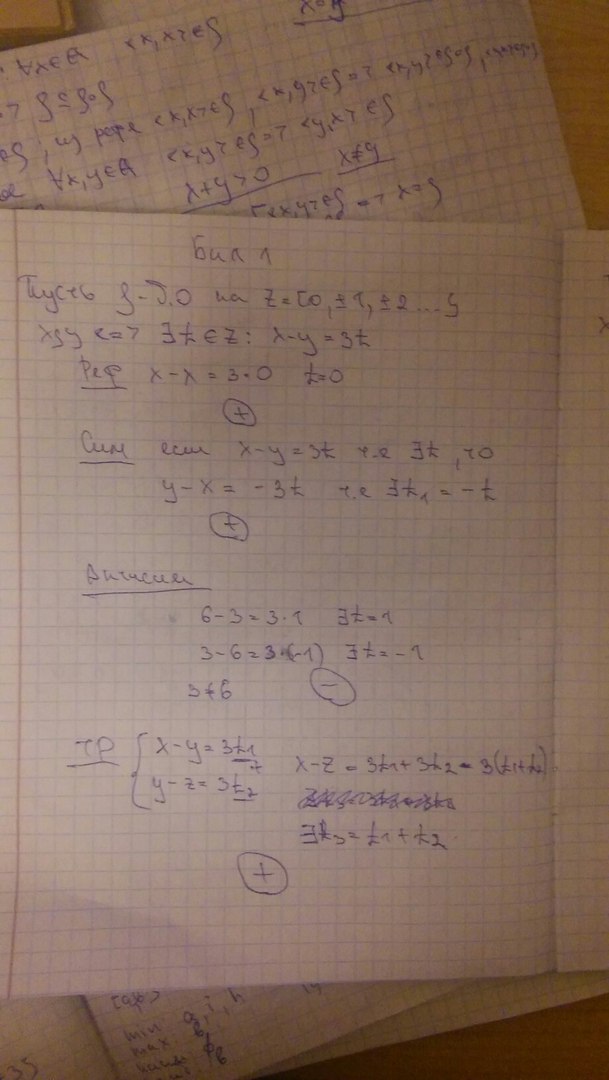 x=y
∀x∈A <x,x>∈ρ
ρ⊆ρ∘ρ
из реф <x,x>∈ρ, <x,y>∈ρ => <x,y>∈ρ∘ρ
∀x,y∈A <x,y>∈ρ => <y,x>∈ρ
x+y>0 x≠y
<x,y>∈ρ => x=y
Бил 1
Пусть ρ - Б.О на Z={0, ±1, ±2 ...}
xρy <=> ∃t∈Z: x-y=3t
Реф x-x=3·0 t=0
+
Сим если x-y=3t т.е ∃t, то
y-x = -3t т.е ∃t₁ = -t
+
Антисим
6-3=3·1 ∃t=1
3-6=3·(-1) ∃t=-1
3≠6 −
ТР { x-y=3t₁ x-z = 3t₁+3t₂ = 3(t₁+t₂)
y-z=3t₂
∃t₃=t₁+t₂
+
min
max